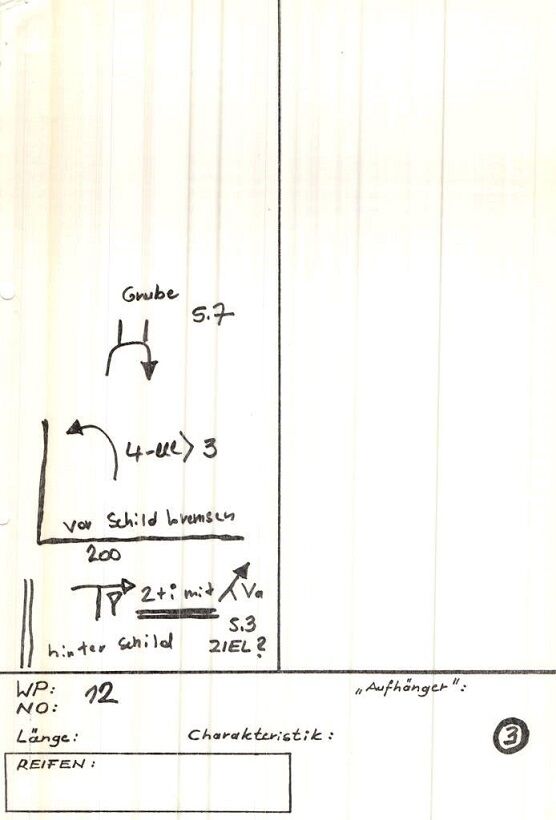 Grube
5.7
4-lll> 3
vor Schild bremsen
200
2+i mit Va
5.3
hinter Schild ZIEL?
WP: 12 „Aufhänger":
NO:
Länge: Charakteristik: 3
REIFEN: